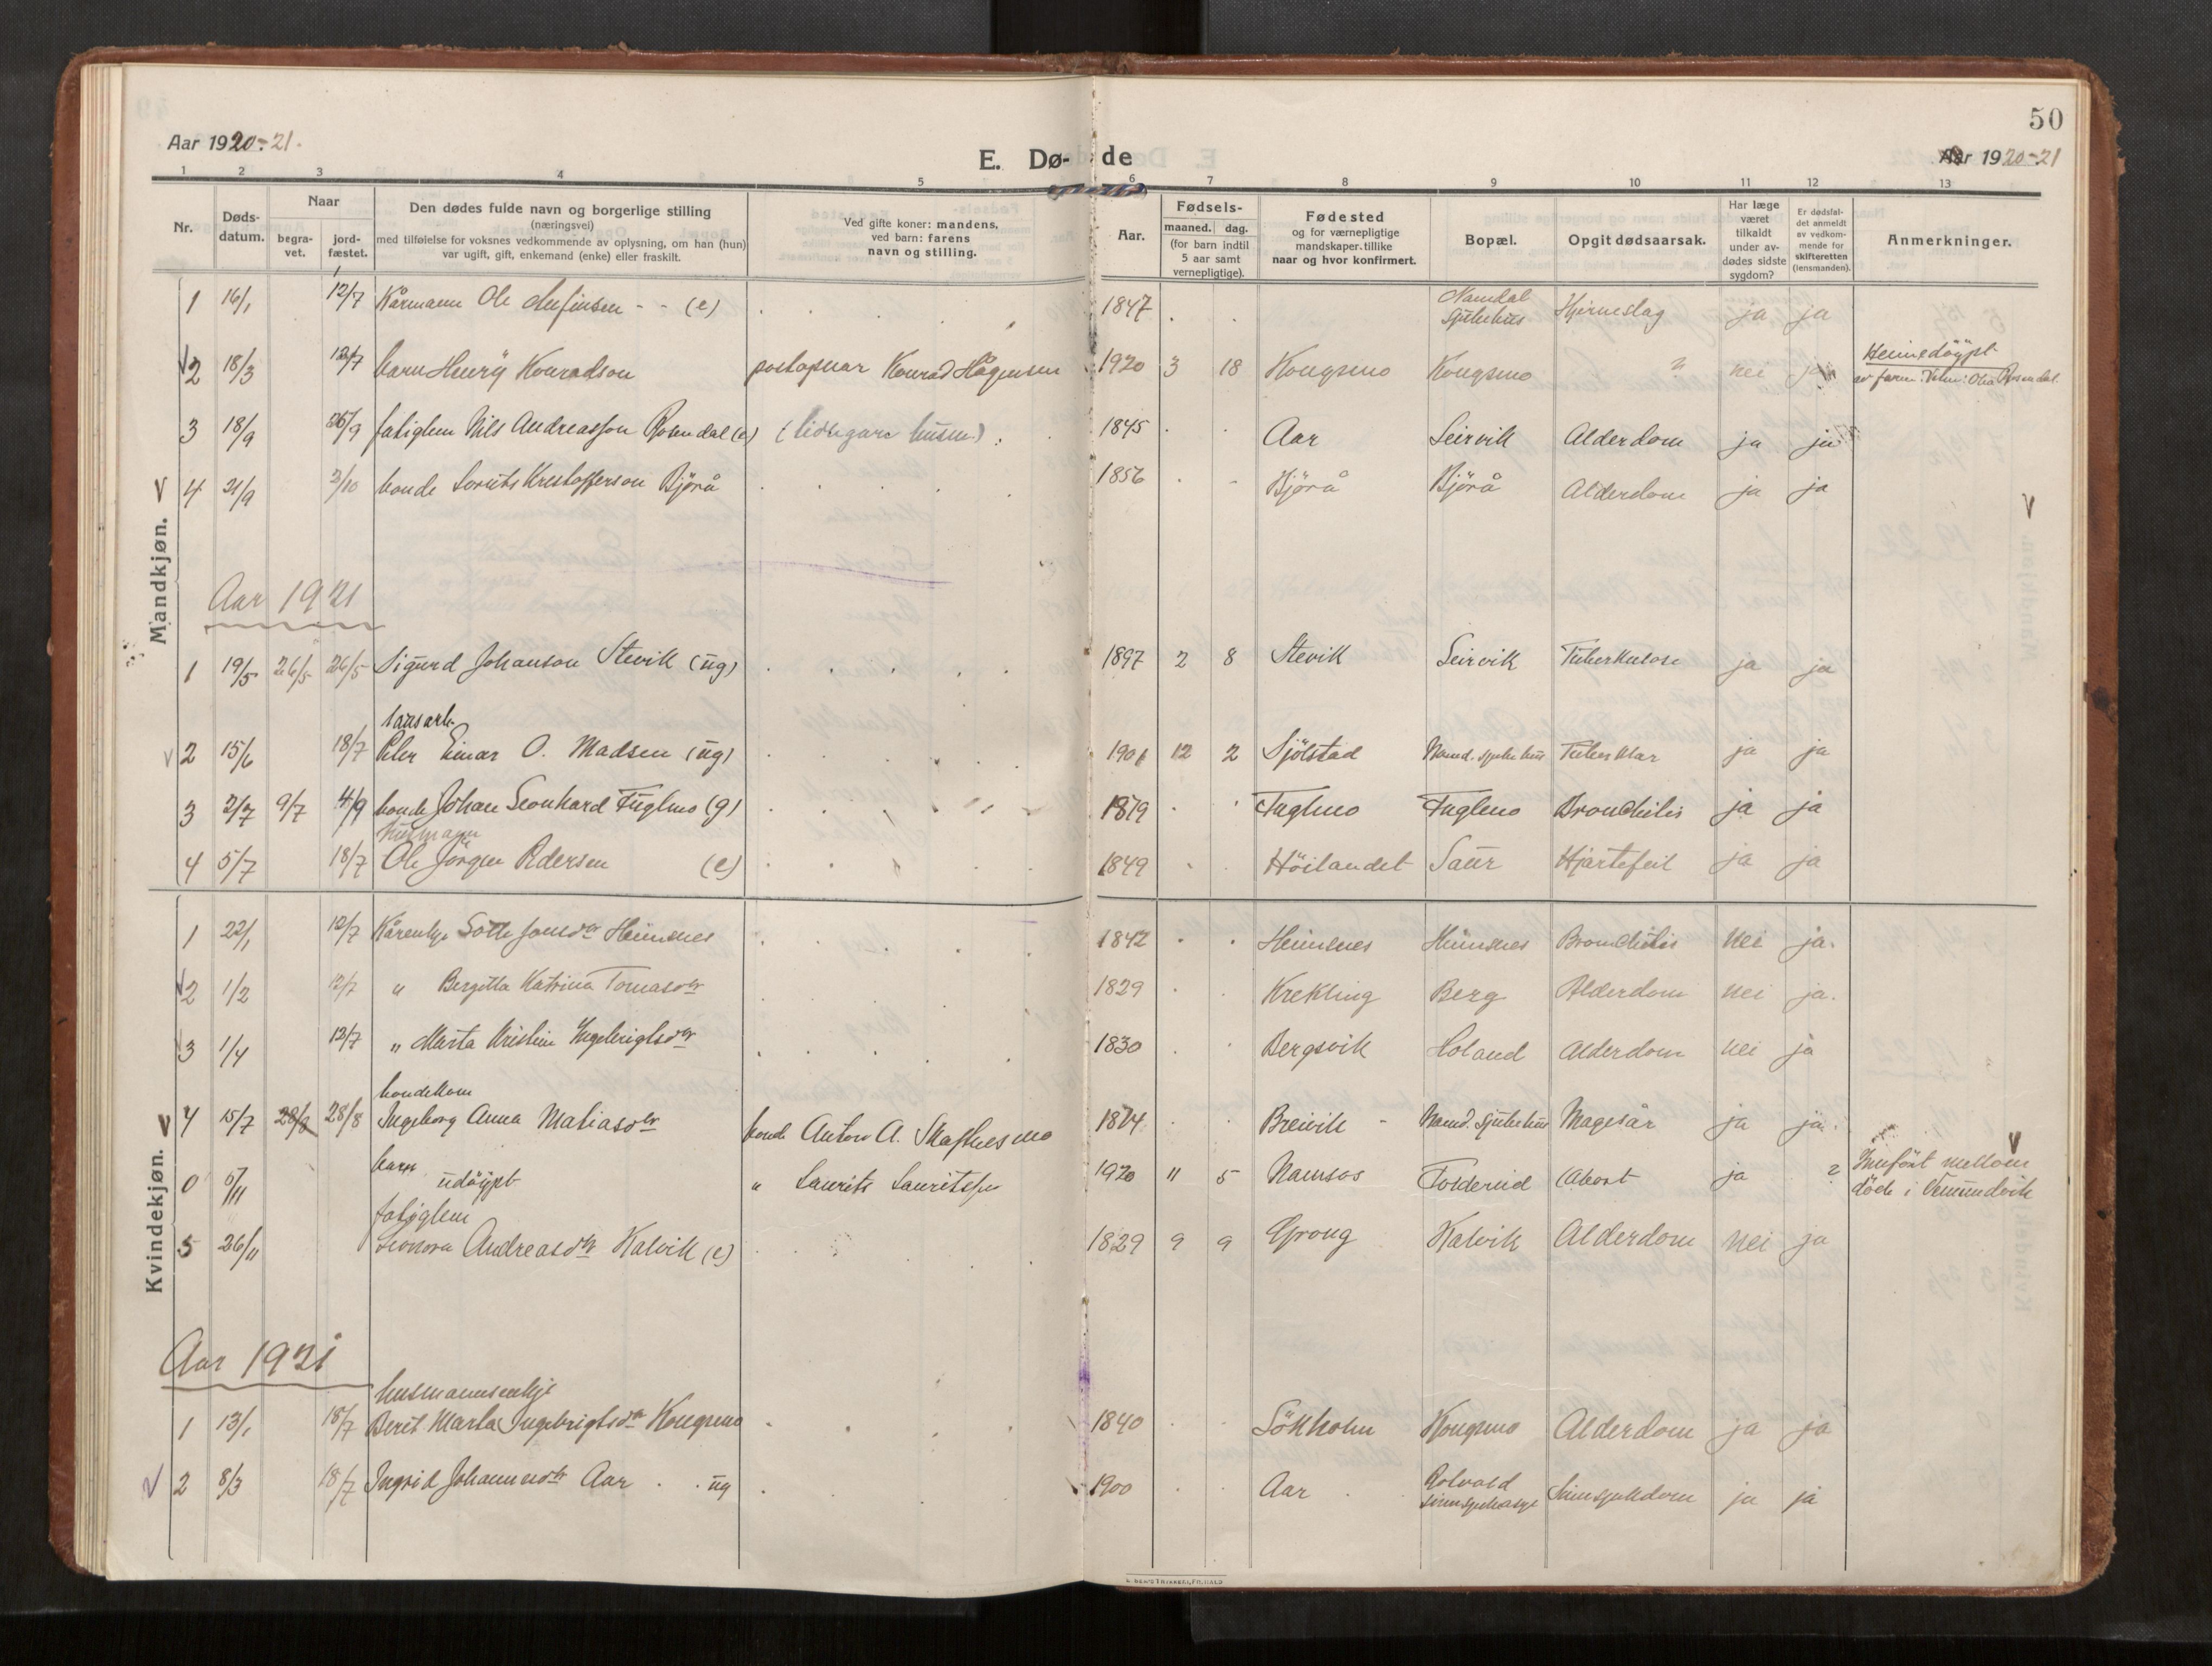 50
Aar 1920-21.
E. Dø-de
Aar 1920-21
1 2 3 4 5 6 7 8 9 10 11 12 13
Nr.
Døds-datum.
Naar
begra-vet.
jord-fæstet.
Den dødes fulde navn og borgerlige stilling
(næringsvei)
med tilføielse for voksnes vedkommende av oplysning, om han (hun)
var ugift, gift, enkemand (enke) eller fraskilt.
Ved gifte koner: mandens,
ved barn: farens
navn og stilling.
Aar.
Fødsels-
maaned. dag.
(for barn indtil
5 aar samt
vernepligtige).
Fødested
og for værnepligtige
mandskaper tillike
naar og hvor konfirmert.
Bopæl.
Opgit dødsaarsak.
Har læge
været
tilkaldt
under av-
dødes sidste
sygdom?
Er dødsfal-
det anmeldt
av vedkom-
mende for
skifteretten
(lensmanden).
Anmerkninger.
Mandkjøn.
1 16/1 12/7 Kårmann Ole (e) 1847 Namdal sjukehus Hjerneslag ja ja
2 18/3 12/7 barn Henry Konradson postopnar Konrad Hågensen 1920 3 18 Kongsmo Kongsmo ? nei ja Heimedöypt
av faren
3 18/9 26/9 fatiglem Nils Andreasson Rosendal (e) (tidligare husm.) 1845 Aar Seirvik Alderdom ja ja
4 21/9 3/10 bonde Lorents Kristofferson Björå 1856 Björå Björå Alderdom ja ja
Aar 1921
1 19/5 26/5 26/5 Sigurd Johanson Stevik (ug) 1897 2 8 Stevik Seirvik Tuberkulose ja ja
2 15/6 18/7 Peter Einar O. Madsen (ug) 1901 12 2 Sjölstad Namd. sjukehus ja ja
3 2/7 9/7 4/9 bonde Johan Leonhard Fuglmo (g) 1879 Fuglmo Fuglmo Bronchitis ja ja
husmann
4 5/7 18/7 Ole Jörgen Pedersen (e) 1849 Höilandet Saur Hjartefeil ja ja
Kvindekjøn.
1 22/1 12/7 Kårenkje Jonsdtr Heimsnes 1842 Heimsnes Heimsnes Bronchitis nei ja.
2 1/2 12/7 " Bergitta Katrina Tomasdtr 1829 Krekling Berg Alderdom nei ja.
3 1/4 12/7 " Marta Kristine Ingebrigtsdtr 1830 Bergsvik Holand Alderdom nei ja
bondekone
4 15/7 28/8 28/8 Ingeborg Anna Matiasdtr bonde Anton A. Skaflnesmo 1874 Breivik Namd. Sjukehus Magesår ja ja
0 5/11 barn udöypt " Laurits Lauritssen 1920 11 5 Namsos Foldereid Abort ja ? Innfört mellom
döde i Vemundvik
fatiglem
5 26/11 Leonora Andreasdtr Kalvik (e) 1829 9 9 Grong Kalvik Alderdom nei ja
Aar 1921
husmannsenkje
1 13/1 18/7 Berit Marta Ingebrigtsdtr Kongsmo 1840 Sökholm Kongsmo Alderdom ja ja
2 8/3 18/7 Ingrid Johannesdtr Aar ug 1900 Aar Rotvold
sinnsjukeasyl Sinnsjukdom ja ja